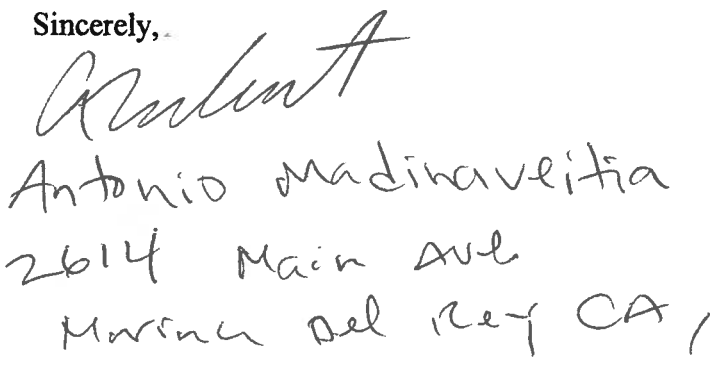 Sincerely,
Antonio Madinaveitia
2614 Main Ave
Marina Del Rey CA,